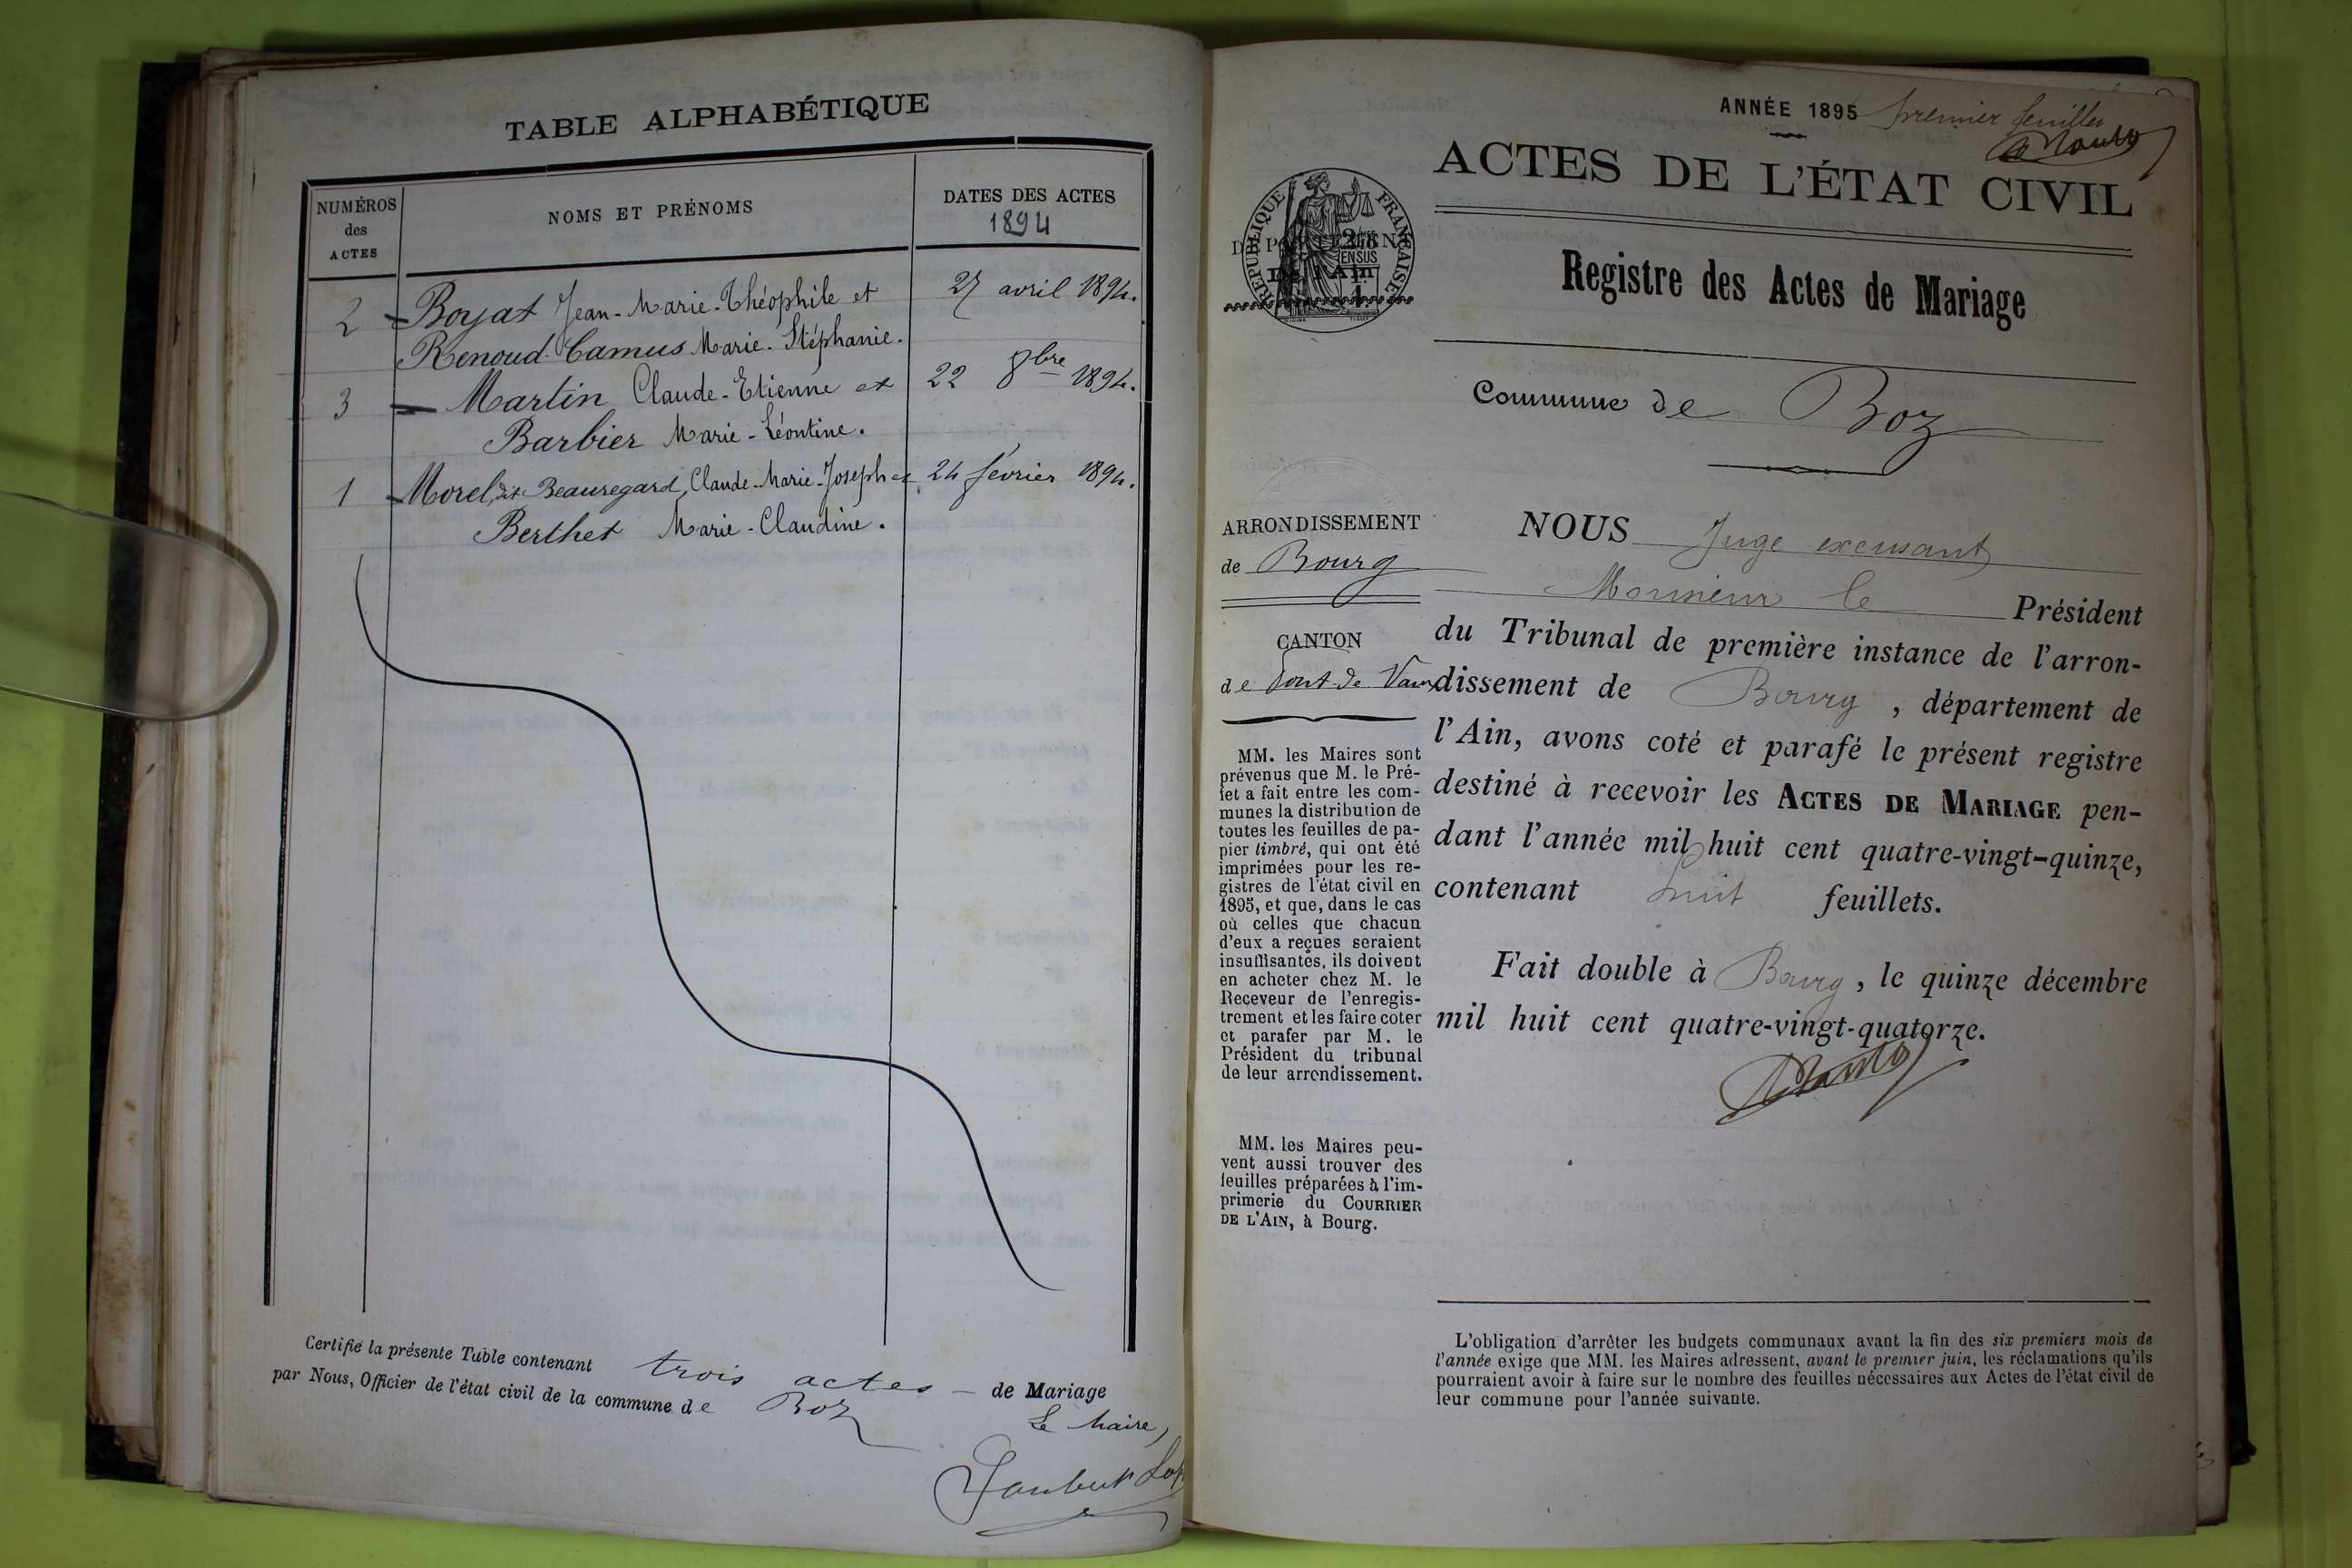 TABLE ALPHABÉTIQUE
NUMÉROS
des
ACTES
NOMS ET PRÉNOMS
DATES DES ACTES
1894
2 Boyat Jean-Marie-Théophile et 27 avril 1894.
Renoud-Camus Marie-Stéphanie.
3 Martin Claude-Etienne et 22 8bre 1894.
Barbier Marie-Léontine.
1 Morel, dit Beauregard, Claude-Marie-Joseph et 24 février 1894.
Berthet Marie-Claudine.
Certifié la présente Table contenant trois actes de Mariage
par Nous, Officier de l'état civil de la commune de Boz
Le Maire,
ANNÉE 1895 premier feuillet
ACTES DE L'ÉTAT CIVIL
RÉPUBLIQUE FRANÇAISE
DÉPARTEMENT
De l'Ain
2/10
EN SUS
Registre des Actes de Mariage
Commune de Boz
ARRONDISSEMENT
de Bourg
CANTON
de Pont-de-Vaux
MM. les Maires sont
prévenus que M. le Pré-
fet a fait entre les com-
munes la distribution de
toutes les feuilles de pa-
pier timbré, qui ont été
imprimées pour les re-
gistres de l'état civil en
1895, et que, dans le cas
où celles que chacun
d'eux a reçues seraient
insuffisantes, ils doivent
en acheter chez M. le
Receveur de l'enregis-
trement et les faire coter
et parafer par M. le
Président du tribunal
de leur arrondissement.
MM. les Maires peu-
vent aussi trouver des
feuilles préparées à l'im-
primerie du COURRIER
DE L'AIN, à Bourg.
NOUS Juge excusant
Monsieur le Président
du Tribunal de première instance de l'arron-
dissement de Bourg, département de
l'Ain, avons coté et parafé le présent registre
destiné à recevoir les ACTES DE MARIAGE pen-
dant l'année mil huit cent quatre-vingt-quinze,
contenant huit feuillets.
Fait double à Bourg, le quinze décembre
mil huit cent quatre-vingt-quatorze.
L'obligation d'arrêter les budgets communaux avant la fin des six premiers mois de
l'année exige que MM. les Maires adressent, avant le premier juin, les réclamations qu'ils
pourraient avoir à faire sur le nombre des feuilles nécessaires aux Actes de l'état civil de
leur commune pour l'année suivante.